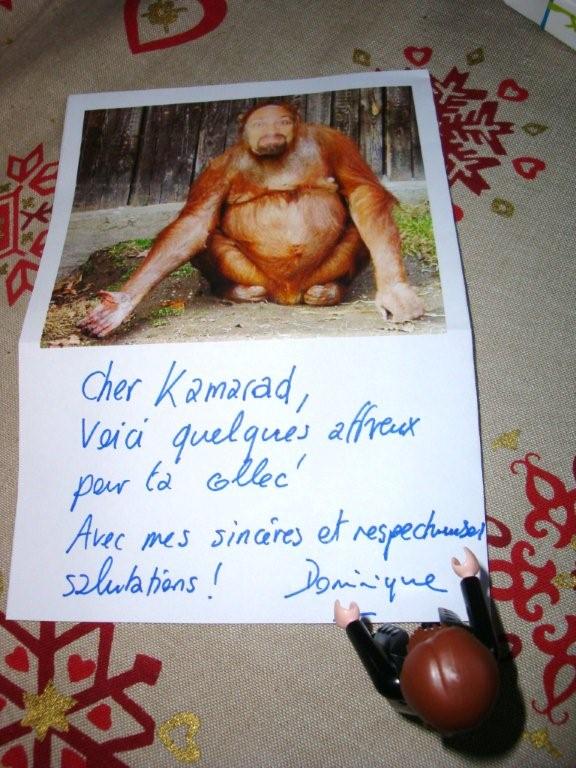 Cher Kamarad,
Voici quelques affreux
pour ta collec'
Avec mes sincères et respectueuses
salutations !    Dominique